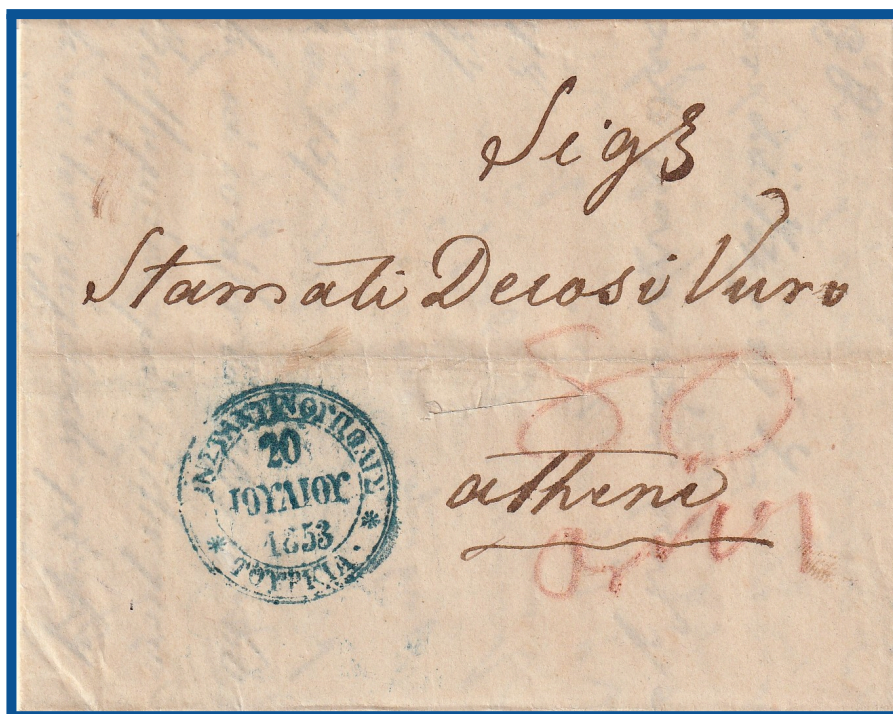 Sigr
Stamati Decosi Vuro
80
athene
ΚΩΝΣΤΑΝΤΙΝΟΥΠΟΛΙΣ
20
ΙΟΥΛΙΟΥ
1853
* ΤΟΥΡΚΙΑ. *